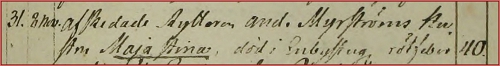 31. 8 Nov. afskedade Ryttaren And. Myrströms hu-
stru Maja Stina, död i Enbystug, rötfeber 40.